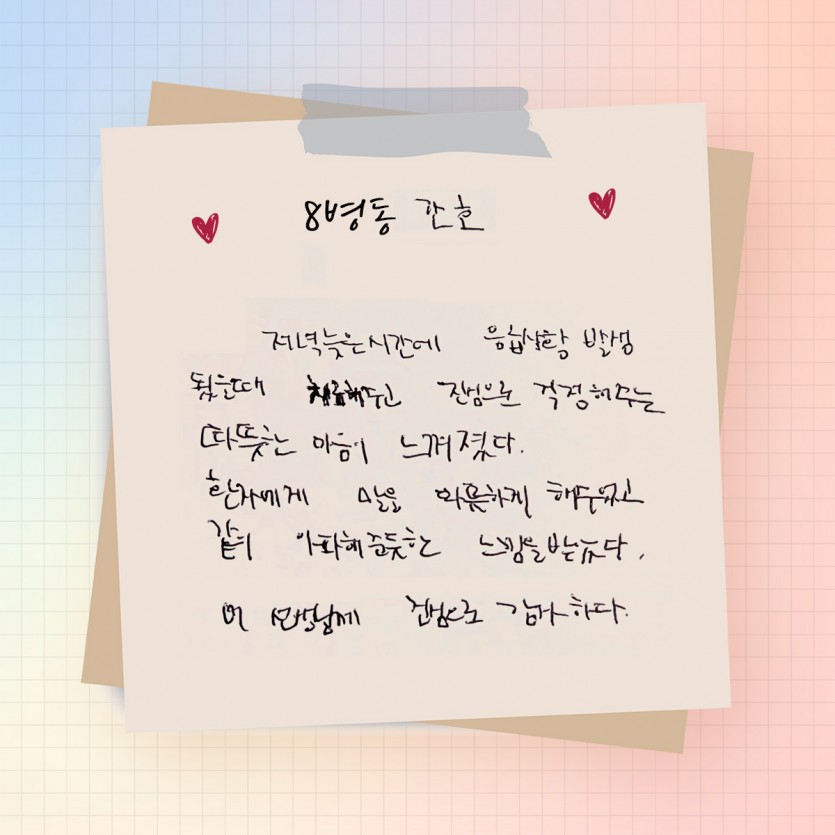 8병동 간호
저녁늦은시간에 응급상황 발생
됬을때 치료해주고 진심으로 걱정해주는
따뜻한 마음이 느껴졌다.
환자에게 말을 따뜻하게 해주었고
같이 아파해준듯한 느낌을받았다.
이 선생님께 진심으로 감사하다.